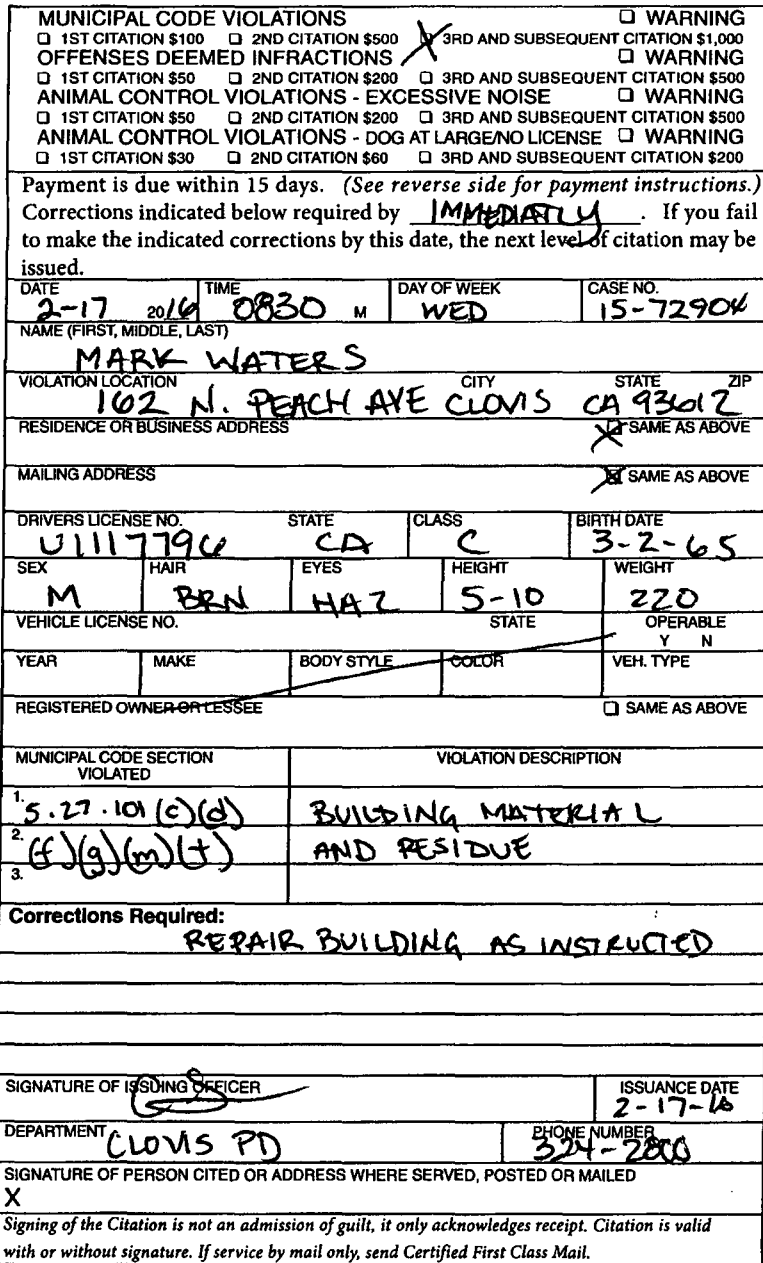 MUNICIPAL CODE VIOLATIONS ☐ WARNING
☐ 1ST CITATION $100 ☐ 2ND CITATION $500 ☒ 3RD AND SUBSEQUENT CITATION $1,000
OFFENSES DEEMED INFRACTIONS ☐ WARNING
☐ 1ST CITATION $50 ☐ 2ND CITATION $200 ☐ 3RD AND SUBSEQUENT CITATION $500
ANIMAL CONTROL VIOLATIONS - EXCESSIVE NOISE ☐ WARNING
☐ 1ST CITATION $50 ☐ 2ND CITATION $200 ☐ 3RD AND SUBSEQUENT CITATION $500
ANIMAL CONTROL VIOLATIONS - DOG AT LARGE/NO LICENSE ☐ WARNING
☐ 1ST CITATION $30 ☐ 2ND CITATION $60 ☐ 3RD AND SUBSEQUENT CITATION $200
Payment is due within 15 days. (See reverse side for payment instructions.)
Corrections indicated below required by IMMEDIATLY . If you fail
to make the indicated corrections by this date, the next level of citation may be
issued.
DATE TIME DAY OF WEEK CASE NO.
2-17 2016 0830 M WED 15-72904
NAME (FIRST, MIDDLE, LAST)
MARK WATERS
VIOLATION LOCATION CITY STATE ZIP
162 N. PEACH AVE CLOVIS CA 93612
RESIDENCE OR BUSINESS ADDRESS ☒ SAME AS ABOVE
MAILING ADDRESS ☒ SAME AS ABOVE
DRIVERS LICENSE NO. STATE CLASS BIRTH DATE
U1117796 CA C 3-2-65
SEX HAIR EYES HEIGHT WEIGHT
M BRN HAZ 5-10 220
VEHICLE LICENSE NO. STATE OPERABLE
Y N
YEAR MAKE BODY STYLE COLOR VEH. TYPE
REGISTERED OWNER OR LESSEE ☐ SAME AS ABOVE
MUNICIPAL CODE SECTION VIOLATION DESCRIPTION
VIOLATED
1. 5.27.101 (c)(d) BUILDING MATERIAL
2. (f)(g)(m)(t) AND RESIDUE
3.
Corrections Required:
REPAIR BUILDING AS INSTRUCTED
SIGNATURE OF ISSUING OFFICER ISSUANCE DATE
2-17-16
DEPARTMENT CLOVIS PD PHONE NUMBER
324-2800
SIGNATURE OF PERSON CITED OR ADDRESS WHERE SERVED, POSTED OR MAILED
X
Signing of the Citation is not an admission of guilt, it only acknowledges receipt. Citation is valid
with or without signature. If service by mail only, send Certified First Class Mail.